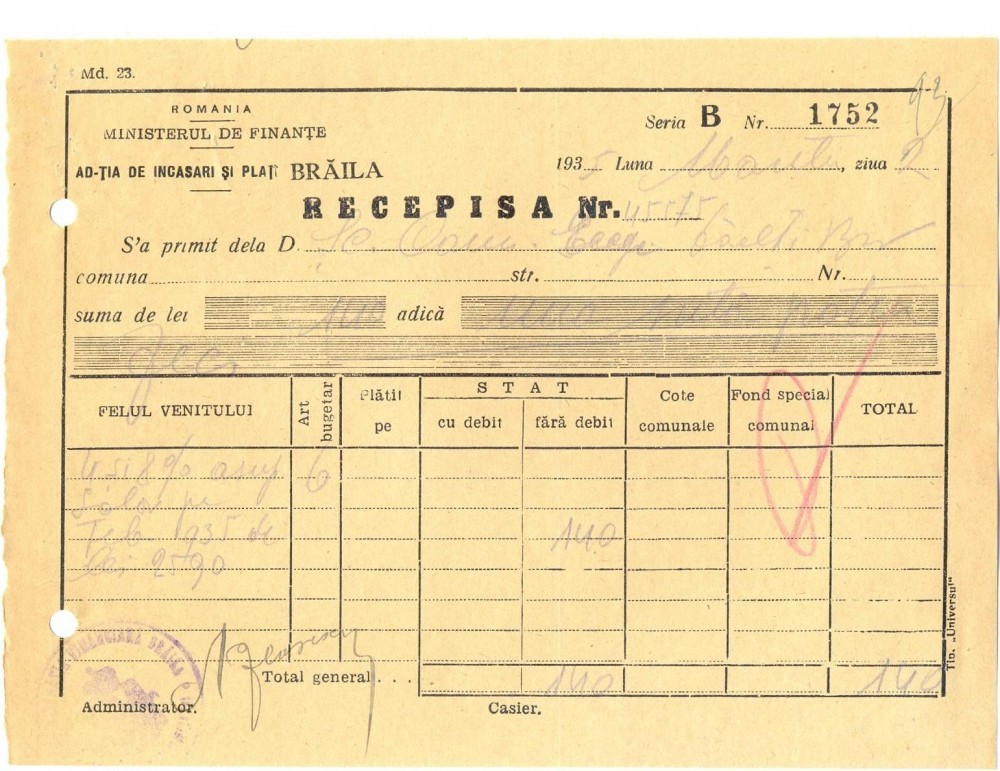 Md. 23.
ROMANIA
MINISTERUL DE FINANȚE
AD-ȚIA DE INCASARI ȘI PLAȚI BRĂILA
Seria B Nr. 1752
1935 Luna Martie, ziua 2
RECEPISA Nr. 45575
S'a primit dela D. Sc. Com.
comuna str. Nr.
suma de lei 140 adică una sută patru
zeci
FELUL VENITULUI
Art bugetar
Plătit pe
STAT
cu debit
fără debit
Cote comunale
Fond special comunal
TOTAL
6
Feb. 1935 de
140
Lei 2590
Total general . . . . 140 140
Administrator.
Casier.
Tip. „Universul"